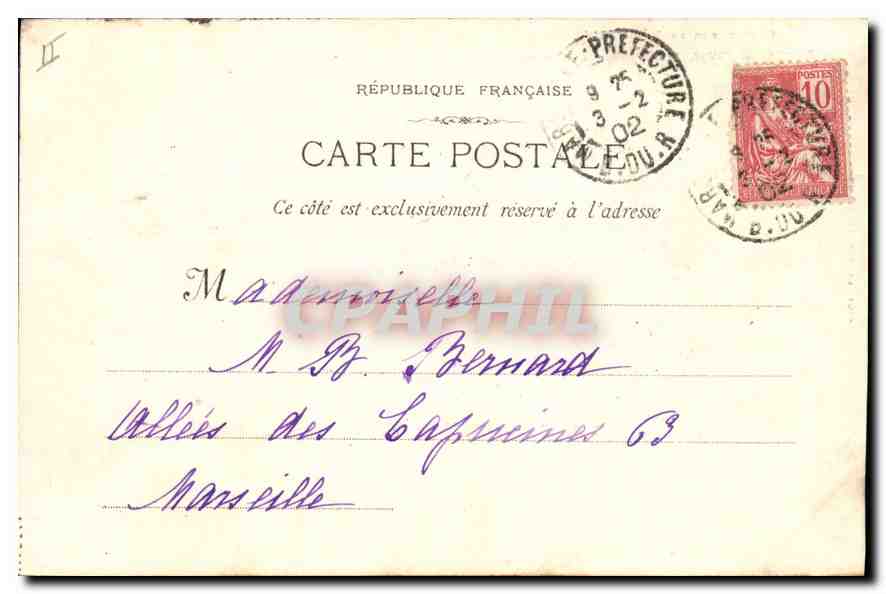 II
PREFECTURE
9 25
3 -2
02
B.DU.R
RÉPUBLIQUE FRANÇAISE
POSTES
10
PREFECTURE
MAR
02
B.DU
CARTE POSTALE
Ce côté est exclusivement réservé à l'adresse
Mademoiselle
CPAPHIL
M. B. Bernard
Allées des Capucines 63
Marseille